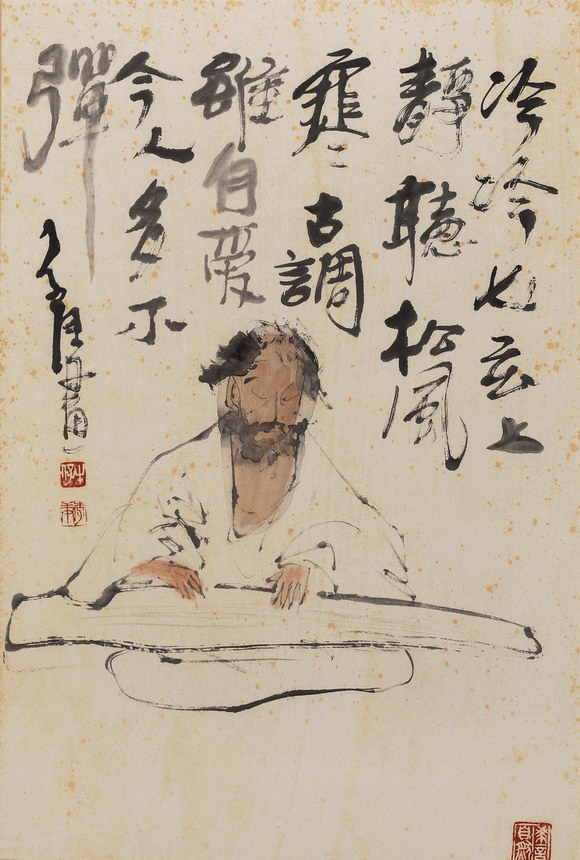 冷冷七玄上
靜聽松風
寒古調
雖自愛
今人多不
彈